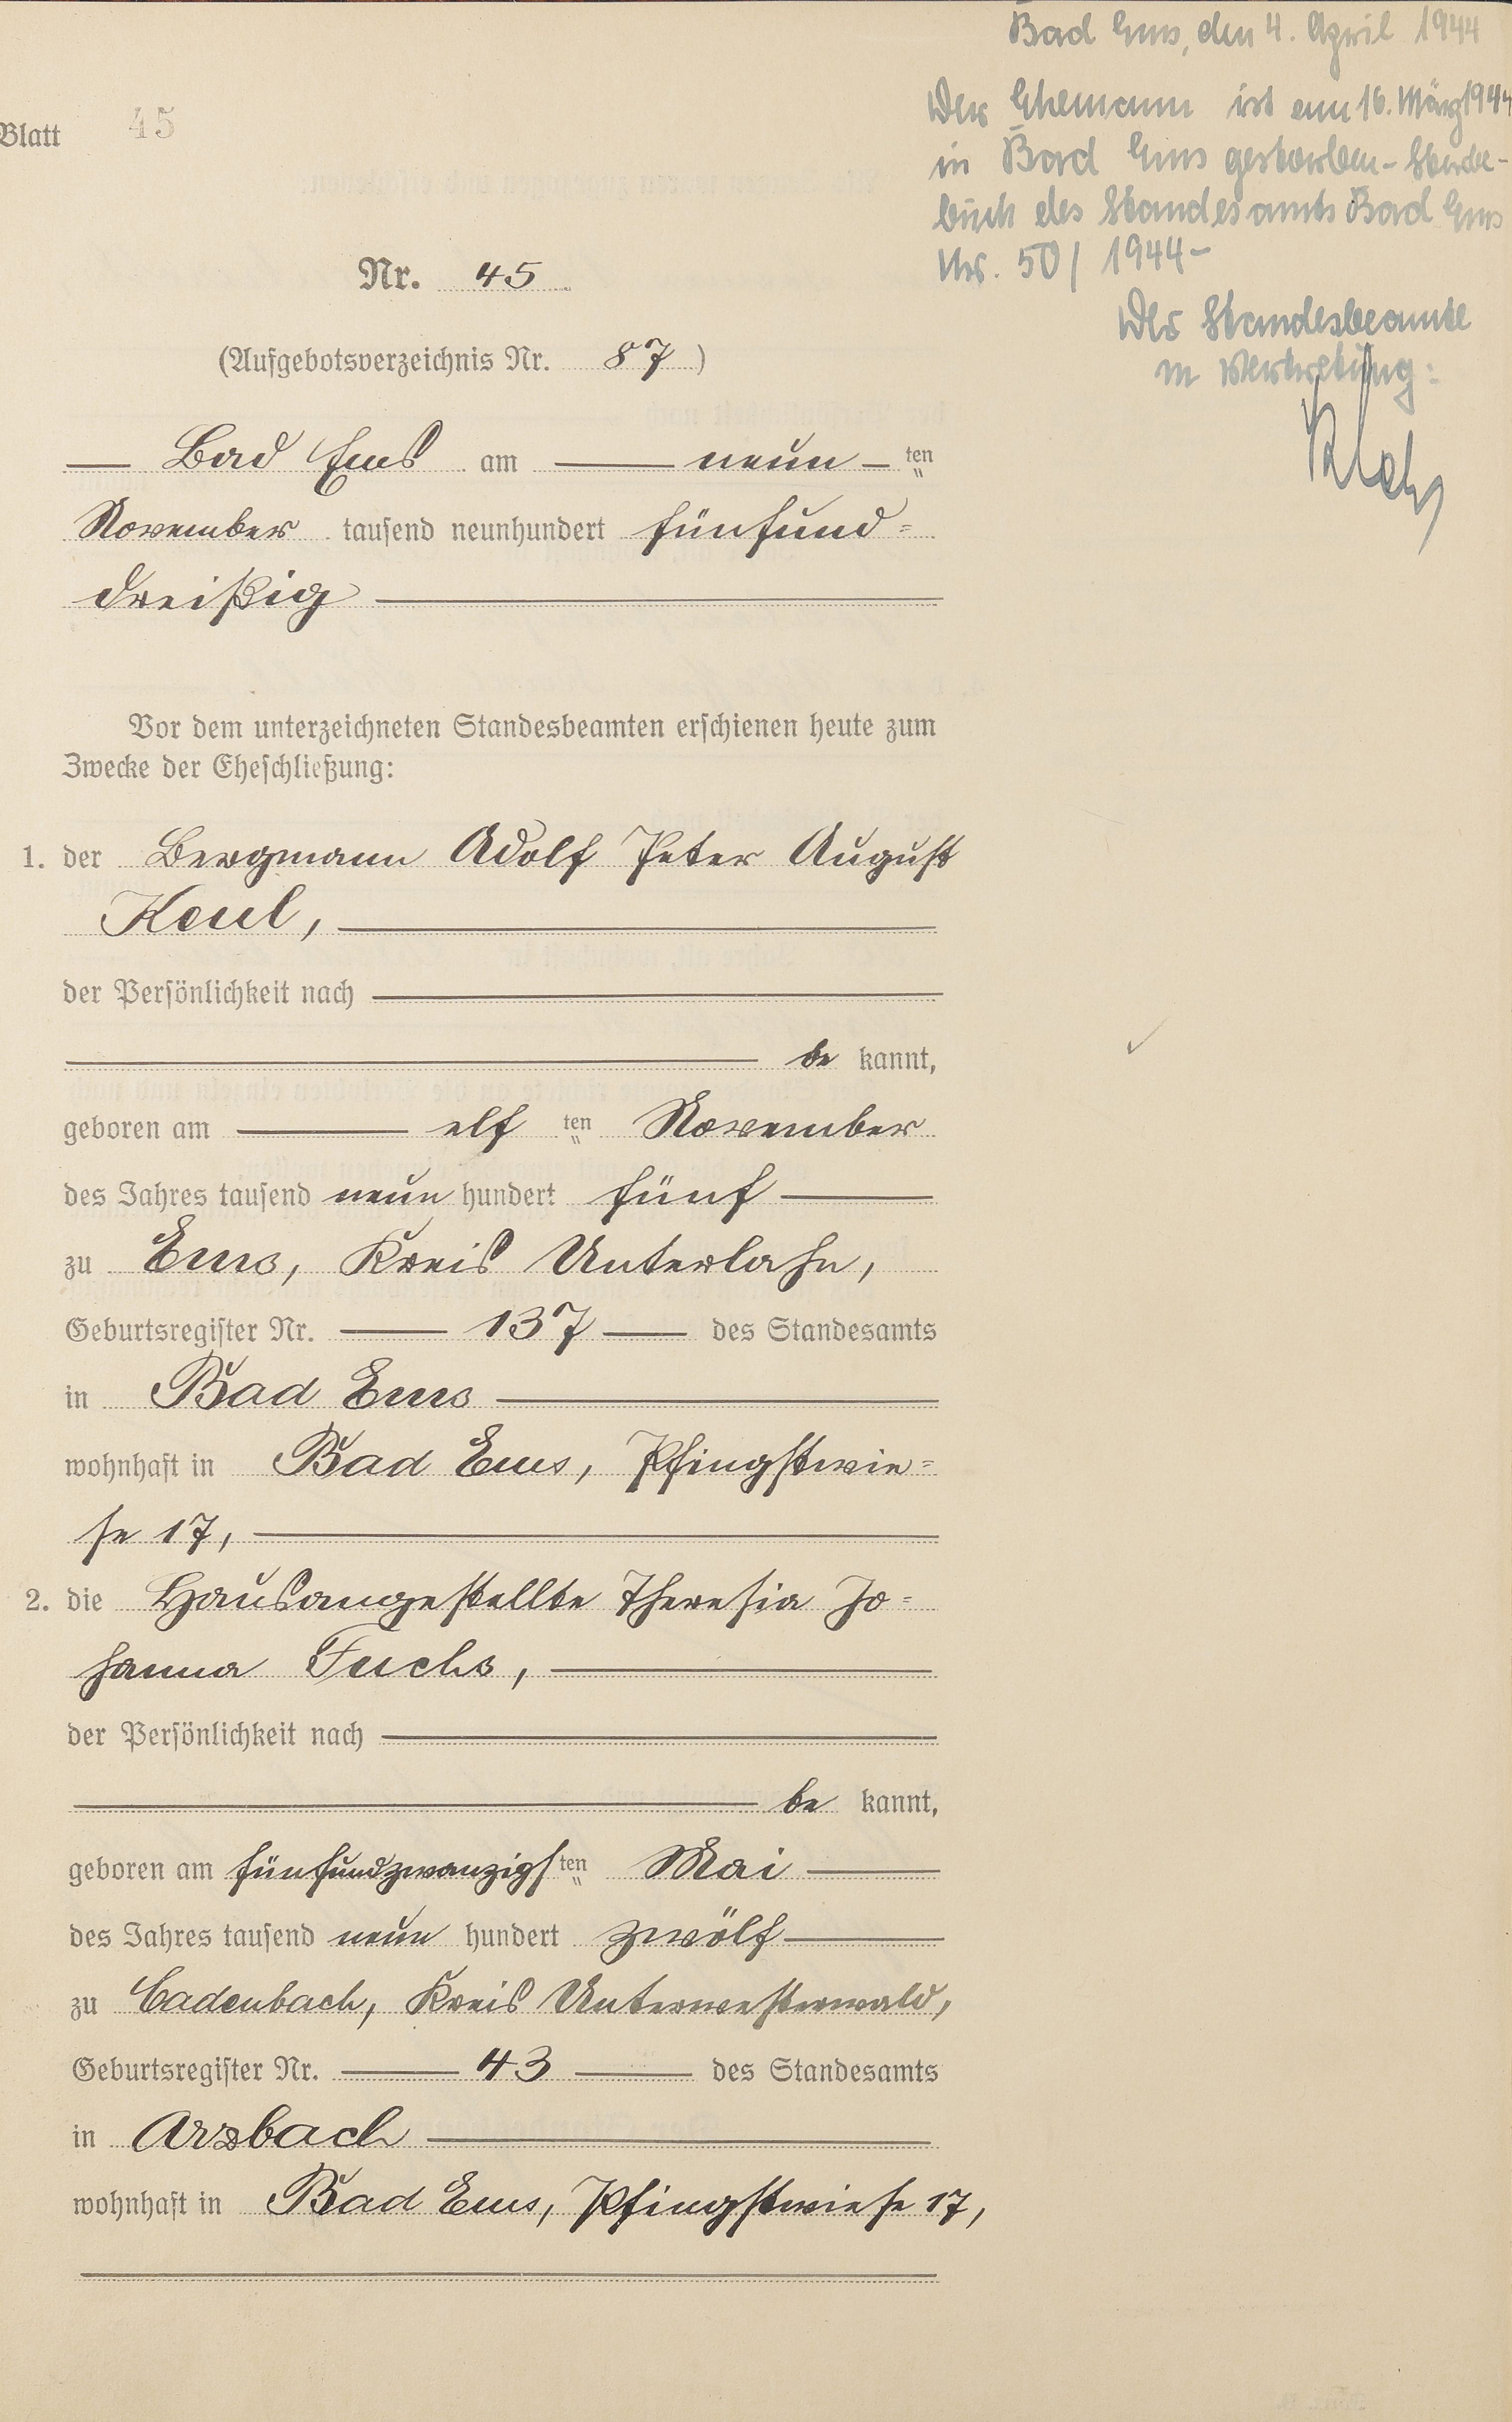 Blatt 45
Bad Ems, den 4. April 1944
Der Ehemann ist am 16. März 1944
in Bad Ems gestorben – Sterbe-
buch des Standesamts Bad Ems
Nr. 50/1944 –
Der Standesbeamte
in Vertretung:
Nr. 45
(Aufgebotsverzeichnis Nr. 87)
Bad Ems am neun ten
November tausend neunhundert fünfund=
dreißig
Vor dem unterzeichneten Standesbeamten erschienen heute zum
Zwecke der Eheschließung:
1. der Bergmann Adolf Peter August
Keul,
der Persönlichkeit nach
be kannt,
geboren am elf ten November
des Jahres tausend neun hundert fünf
zu Ems, Kreis Unterlahn,
Geburtsregister Nr. 137 des Standesamts
in Bad Ems
wohnhaft in Bad Ems, Pfingstwie=
se 17,
2. die Hausangestellte Theresia Jo=
hanna Fuchs,
der Persönlichkeit nach
be kannt,
geboren am fünfundzwanzigs ten Mai
des Jahres tausend neun hundert zwölf
zu Cadenbach, Kreis Unterwesterwald,
Geburtsregister Nr. 43 des Standesamts
in Arzbach
wohnhaft in Bad Ems, Pfingstwiese 17,